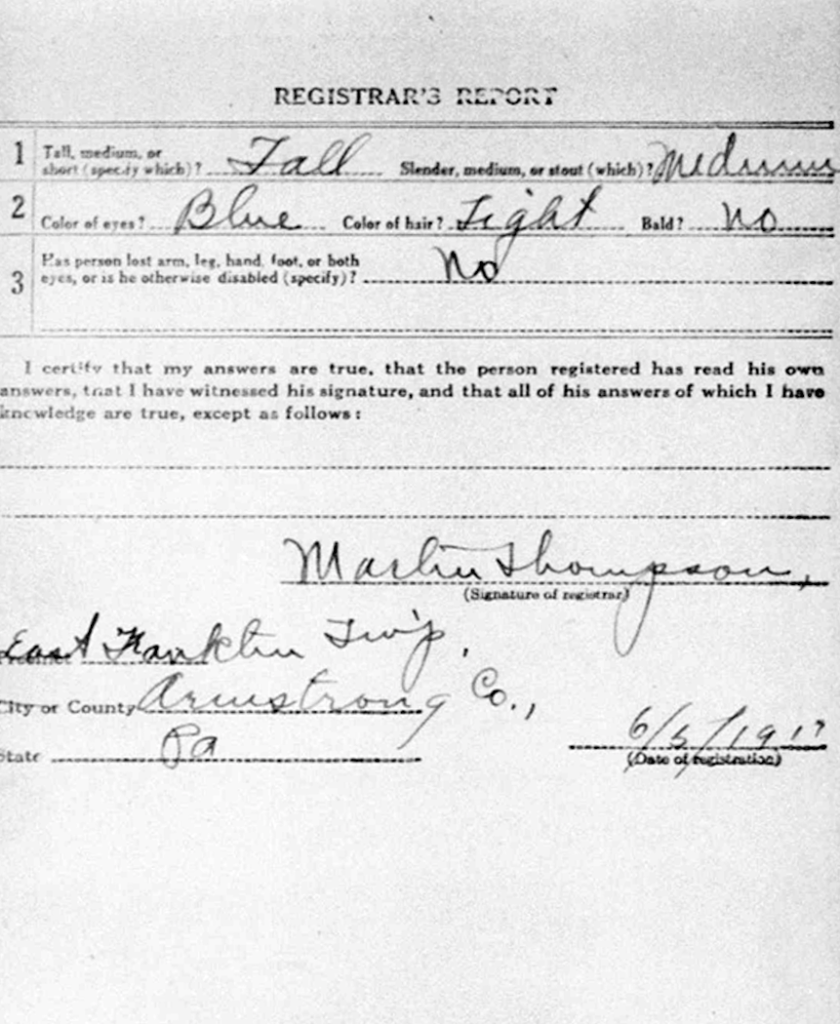 REGISTRAR'S REPORT
1 Tall, medium, or short (specify which)? Tall Slender, medium, or stout (which)? Medium
2 Color of eyes? Blue Color of hair? Light Bald? No
3 Has person lost arm, leg, hand, foot, or both eyes, or is he otherwise disabled (specify)? No
I certify that my answers are true, that the person registered has read his own
answers, that I have witnessed his signature, and that all of his answers of which I have
knowledge are true, except as follows:
Martin Thompson,
(Signature of registrar)
East Franklin Twp.
City or County Armstrong Co.,
State Pa
6/5/1917
(Date of registration)